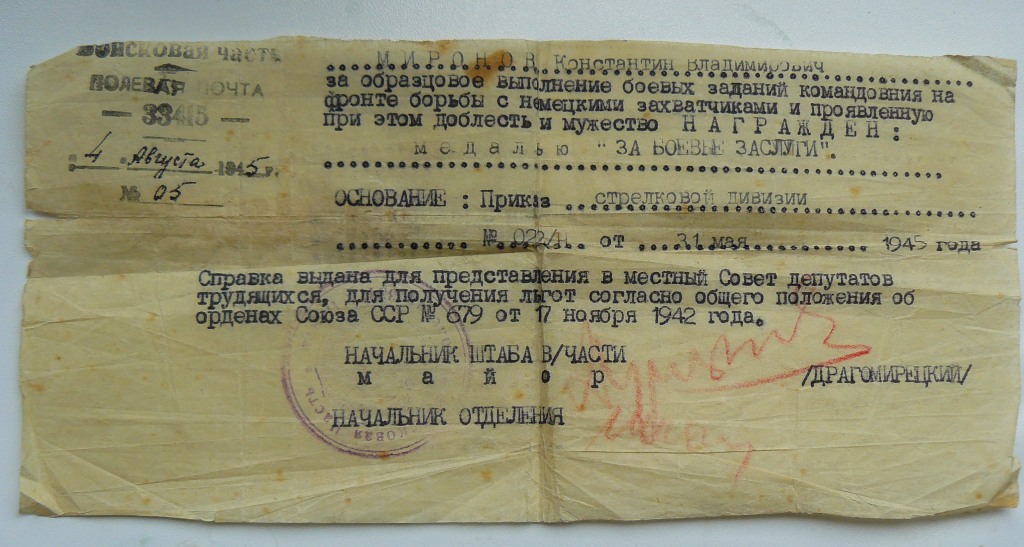 Войсковая часть
ПОЛЕВАЯ ПОЧТА
— 33415 —
"4" Августа 1945 г.
№ 05
МИРОНОВ Константин Владимирович
за образцовое выполнение боевых заданий командовния на
фронте борьбы с немецкими захватчиками и проявленную
при этом доблесть и мужество НАГРАЖДЕН:
медалью "ЗА БОЕВЫЕ ЗАСЛУГИ".
ОСНОВАНИЕ : Приказ стрелковой дивизии
№ 022/Н от 31 мая 1945 года
Справка выдана для представления в местный Совет депутатов
трудящихся, для получения льгот согласно общего положения об
орденах Союза ССР № 679 от 17 ноября 1942 года.
НАЧАЛЬНИК ШТАБА В/ЧАСТИ
майор /ДРАГОМИРЕЦКИЙ/
НАЧАЛЬНИК ОТДЕЛЕНИЯ